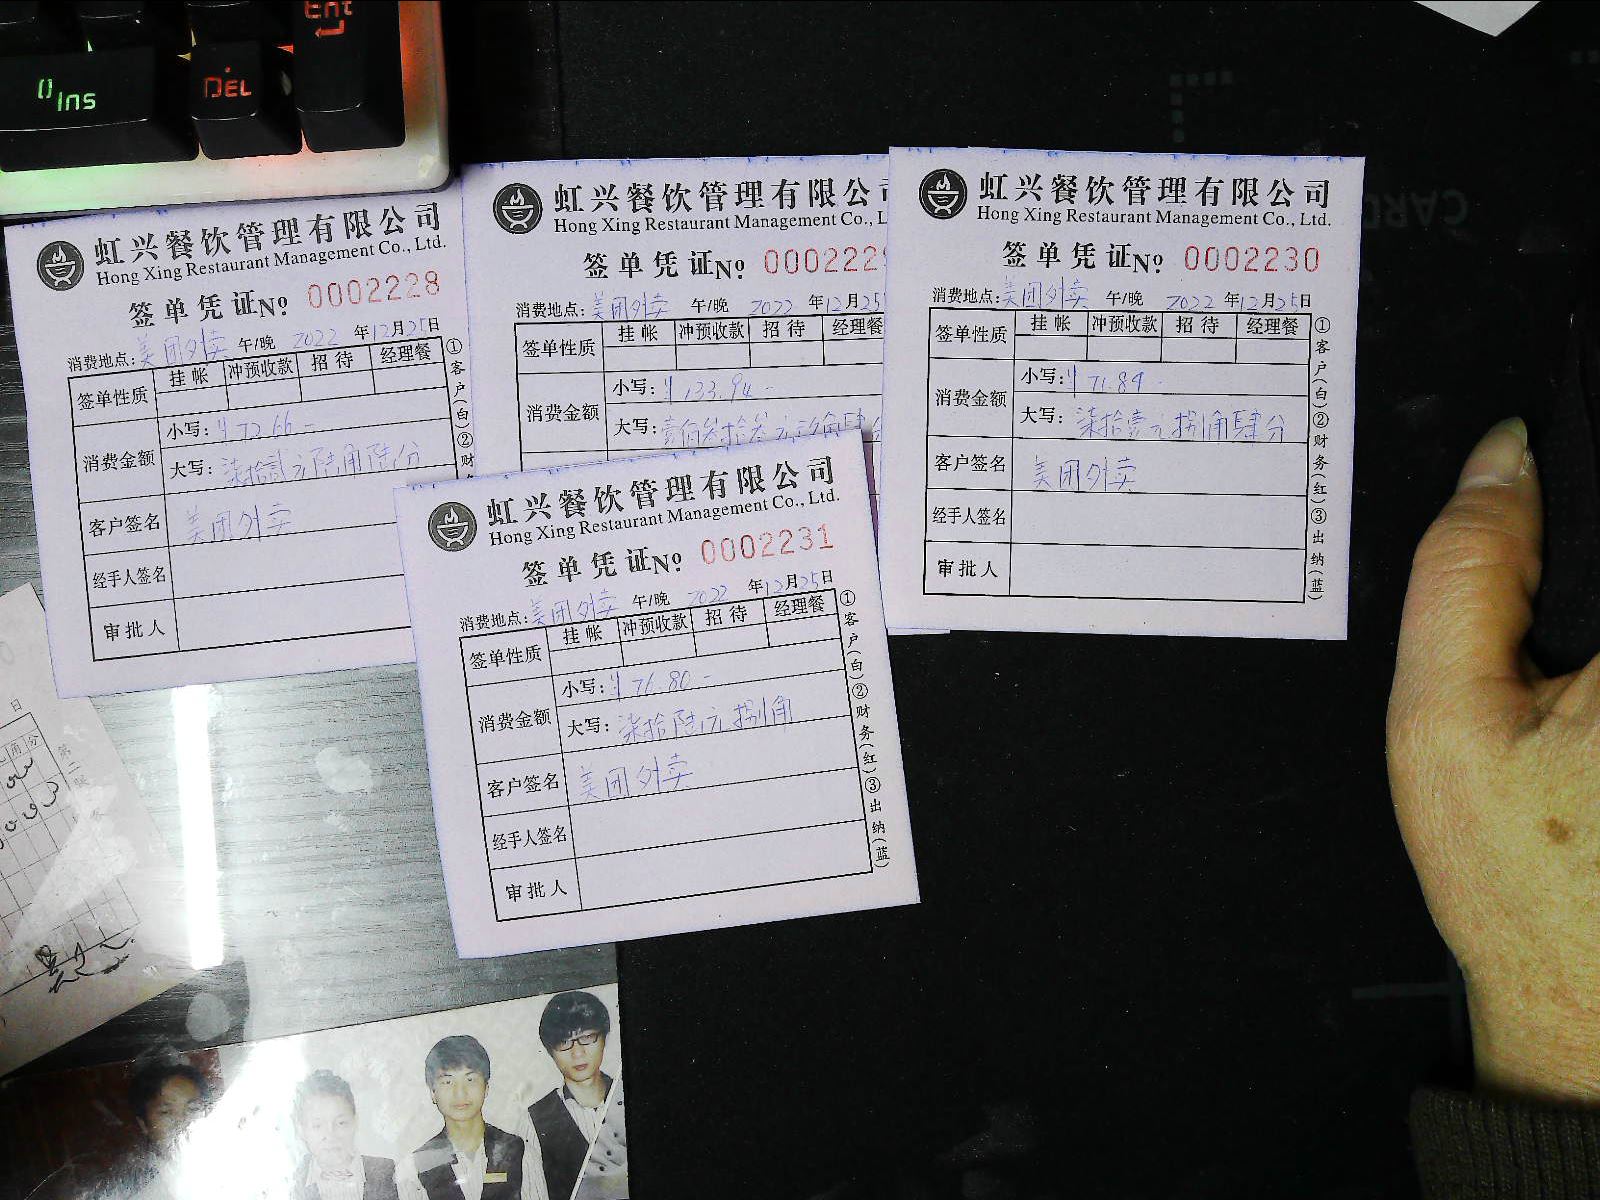 Ent
0 Ins
DEL
虹兴餐饮管理有限公司
Hong Xing Restaurant Management Co., Ltd.
签单凭证No 0002228
消费地点: 美团外卖 午/晚 2022 年12月25日
签单性质 挂帐 冲预收款 招待 经理餐
消费金额 小写: ¥72.66-
大写: 柒拾贰元陆角陆分
客户签名 美团外卖
经手人签名
审批人
①客户(白)②财务
虹兴餐饮管理有限公司
Hong Xing Restaurant Management Co., L
签单凭证No 0002229
消费地点: 美团外卖 午/晚 2022 年12月25
签单性质 挂帐 冲预收款 招待 经理餐
消费金额 小写: ¥133.94-
大写: 壹佰叁拾叁元玖角肆分
虹兴餐饮管理有限公司
Hong Xing Restaurant Management Co., Ltd.
签单凭证No 0002230
消费地点: 美团外卖 午/晚 2022 年12月25日
签单性质 挂帐 冲预收款 招待 经理餐
消费金额 小写: ¥71.84-
大写: 柒拾壹元捌角肆分
客户签名 美团外卖
经手人签名
审批人
①客户(白)②财务(红)③出纳(蓝)
虹兴餐饮管理有限公司
Hong Xing Restaurant Management Co., Ltd.
签单凭证No 0002231
消费地点: 美团外卖 午/晚 2022 年12月25日
签单性质 挂帐 冲预收款 招待 经理餐
消费金额 小写: ¥76.80-
大写: 柒拾陆元捌角
客户签名 美团外卖
经手人签名
审批人
①客户(白)②财务(红)③出纳(蓝)
日
角分
第二联